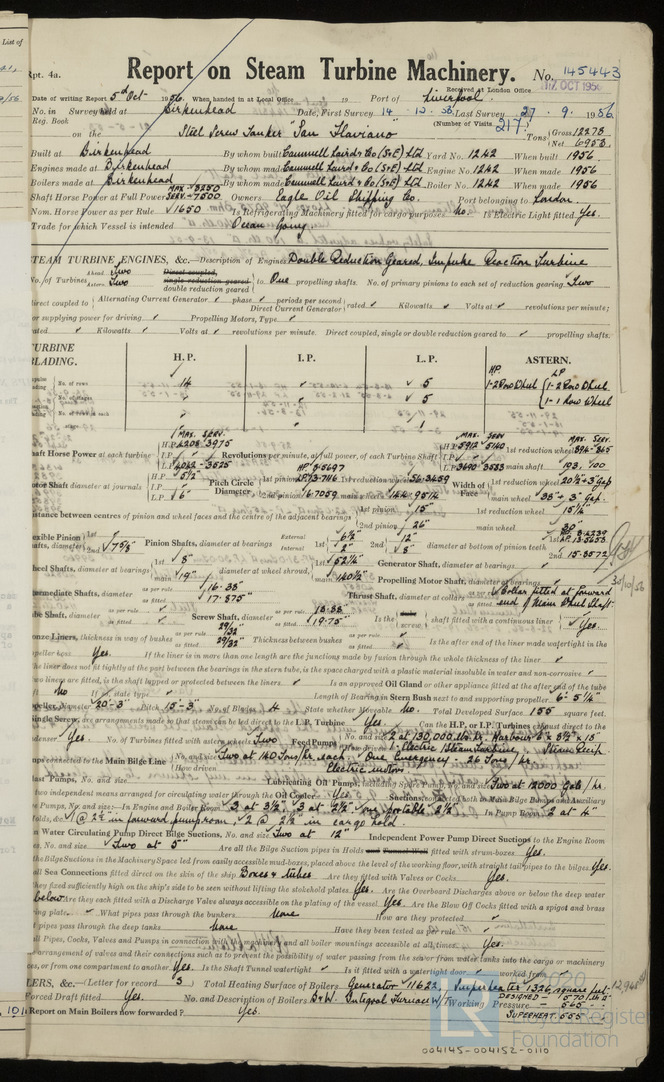 List of
Rpt. 4a.
Report on Steam Turbine Machinery. No. 145443
Received at London Office
17 OCT 1956
Date of writing Report 5th Oct 1956. When handed in at Local Office 19 Port of Liverpool.
No. in Survey held at Birkenhead Date, First Survey Last Survey 27 . 9 . 1956
Reg. Book (Number of Visits 217.)
on the Steel Screw Tanker "San Flaviano" Tons Gross 12278 Net 6953
Built at Birkenhead By whom built Cammell Laird & Co (S&E) Ltd Yard No. 1242 When built 1956
Engines made at Birkenhead By whom made Cammell Laird & Co (S&E) Ltd Engine No. 1242 When made 1956
Boilers made at Birkenhead By whom made Cammell Laird & Co (S&E) Ltd Boiler No. 1242 When made 1956
Shaft Horse Power at Full Power MAX. 8250 SERV. 7500 Owners Eagle Oil Shipping Co. Port belonging to London.
Nom. Horse Power as per Rule 1650 Is Refrigerating Machinery fitted for cargo purposes No Is Electric Light fitted Yes.
Trade for which Vessel is intended Ocean Going
STEAM TURBINE ENGINES, &c.—Description of Engines Double Reduction Geared, Impulse Reaction Turbine
No. of Turbines Ahead Two Astern Two Direct coupled, single reduction geared double reduction geared to One propelling shafts. No. of primary pinions to each set of reduction gearing Two
direct coupled to Alternating Current Generator phase periods per second Direct Current Generator rated Kilowatts Volts at revolutions per minute;
or supplying power for driving Propelling Motors, Type
rated Kilowatts Volts at revolutions per minute. Direct coupled, single or double reduction geared to propelling shafts.
TURBINE BLADING. H.P. I.P. L.P. ASTERN.
No. of rows 14 5 HP 1-2 Row Wheel LP 1-2 Row Wheel
No. of stages 5 1-1 Row Wheel
MAX. SERV.
Shaft Horse Power at each turbine H.P. 4208 3975 I.P. L.P. 4042 3525 Revolutions per minute, at full power, of each Turbine Shaft H.P. 5912 5740 I.P. L.P. 3690 3583 1st reduction wheel main shaft 103. 100
Rotor Shaft diameter at journals H.P. 5½" I.P. L.P. 6" Pitch Circle Diameter 1st pinion 1st reduction wheel 2nd pinion 16.7059 main wheel Width of Face 1st reduction wheel 20½"+3" Gap main wheel 38"+3" Gap.
Distance between centres of pinion and wheel faces and the centre of the adjacent bearings 1st pinion 15" 2nd pinion 26" 1st reduction wheel 15¼" main wheel 30"
Flexible Pinion Shafts, diameter 1st 2nd 7⅝" Pinion Shafts, diameter at bearings External 1st 6½" 2nd 12" Internal 2" 8" diameter at bottom of pinion teeth 2nd 15.3572
Wheel Shafts, diameter at bearings 1st 8" main 19" diameter at wheel shroud, 1st 52¼" main 140½" Generator Shaft, diameter at bearings Propelling Motor Shaft, diameter at bearings
Intermediate Shafts, diameter as per rule 16.38 as fitted 17.875" Thrust Shaft, diameter at collars as per rule as fitted Collar fitted at forward end of Main Wheel Shaft.
Tube Shaft, diameter as per rule as fitted Screw Shaft, diameter as per rule 18.88 as fitted 19.75" Is the screw shaft fitted with a continuous liner Yes.
Bronze Liners, thickness in way of bushes as per rule as fitted 29/32" Thickness between bushes as per rule as fitted Is the after end of the liner made watertight in the
propeller boss Yes. If the liner is in more than one length are the junctions made by fusion through the whole thickness of the liner
If the liner does not fit tightly at the part between the bearings in the stern tube, is the space charged with a plastic material insoluble in water and non-corrosive
If two liners are fitted, is the shaft lapped or protected between the liners Is an approved Oil Gland or other appliance fitted at the after end of the tube
No If so, state type Length of Bearing in Stern Bush next to and supporting propeller 6'-5¼"
Propeller, Diameter 20'-3" Pitch 15'-3" No. of Blades 4 State whether Moveable No. Total Developed Surface 155 square feet.
Single Screw, are arrangements made so that steam can be led direct to the L.P. Turbine Yes. Can the H.P. or I.P. Turbines exhaust direct to the
condenser Yes. No. of Turbines fitted with astern wheels Two Feed Pumps No. and size 2 at 130,000 lbs. hr. Harbour How driven 1- Electric 1 Steam Turbine, Steam Recip.
Pumps connected to the Main Bilge Line No. and size Two at 140 tons/hr. each. One Emergency - 26 tons/hr How driven Electric motors
Ballast Pumps, No. and size Lubricating Oil Pumps, including Spare Pump, No. and size Two at 12000 Gals/hr.
Are two independent means arranged for circulating water through the Oil Cooler Yes. Suctions, connected both to Main Bilge Pumps and Auxiliary
Bilge Pumps, No. and size:—In Engine and Boiler Room 3 at 3½" 3 at 2½" one portable 2½" In Pump Room 2 at 4"
Holds, &c. 1 @ 2½" in forward pump room, 2 @ 2½" in cargo hold.
Main Water Circulating Pump Direct Bilge Suctions, No. and size Two at 12" Independent Power Pump Direct Suctions to the Engine Room
Bilges, No. and size Two at 5" Are all the Bilge Suction pipes in Holds fitted with strum-boxes Yes.
Are the Bilge Suctions in the Machinery Space led from easily accessible mud-boxes, placed above the level of the working floor, with straight tail pipes to the bilges Yes.
Are all Sea Connections fitted direct on the skin of the ship Boxes & tubes Are they fitted with Valves or Cocks Yes.
Are they fixed sufficiently high on the ship's side to be seen without lifting the stokehold plates Yes. Are the Overboard Discharges above or below the deep water
line below Are they each fitted with a Discharge Valve always accessible on the plating of the vessel Yes. Are the Blow Off Cocks fitted with a spigot and brass
covering plate. What pipes pass through the bunkers None How are they protected
What pipes pass through the deep tanks None Have they been tested as per rule
Are all Pipes, Cocks, Valves and Pumps in connection with the machinery and all boiler mountings accessible at all times Yes.
Is the arrangement of valves and their connections such as to prevent the possibility of water passing from the sea or from water tanks into the cargo or machinery
spaces, or from one compartment to another Yes. Is the Shaft Tunnel watertight Is it fitted with a watertight door worked from
BOILERS, &c.—(Letter for record S) Total Heating Surface of Boilers Generator 11622, Superheater 1326 square feet 12,948
Is Forced Draft fitted Yes. No. and Description of Boilers 2 B+W. Integral Furnace W/T Working Pressure DESIGNED - 570 lbs
565
SUPERHEAT. 555
Is a Report on Main Boilers now forwarded? Yes.
30/10/56
Lloyd's Register
Foundation
004145-004152-0110